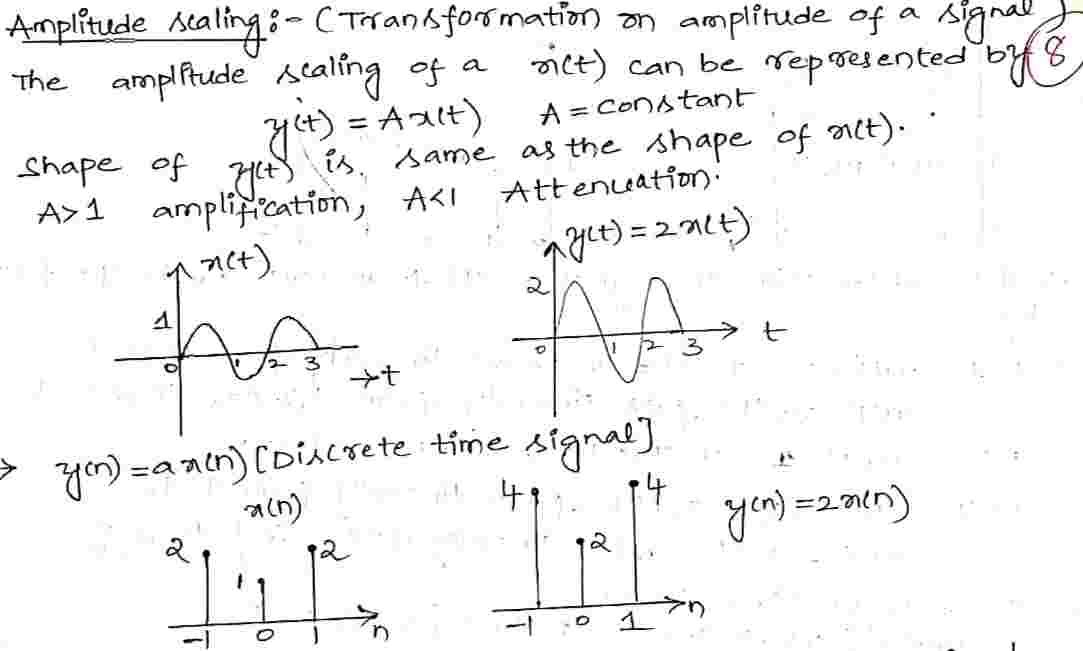 Amplitude scaling :- (Transformation on amplitude of a signal)
The amplitude scaling of a x(t) can be represented by 8
y(t) = A x(t) A = constant
Shape of y(t) is same as the shape of x(t).
A>1 amplification, A<1 Attenuation.
x(t)
1
0 1 2 3
→t
y(t) = 2x(t)
2
0 1 2 3 t
→ y(n) = a x(n) [Discrete time signal]
x(n)
2 1 2
-1 0 1 n
4 2 4
y(n) = 2x(n)
-1 0 1 n